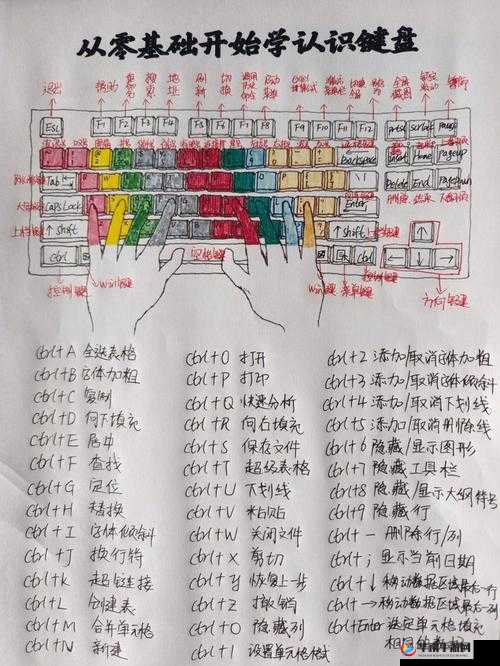 从零基础开始学认识键盘
退出 换内 刷新 切换
Esc F1 F2 F3 F4 F5 F6 F7 F8 F9 F10 F11 F12 prtsc Scrlock Pause
Backspace Insert Home Pageup
Tab Delete End Pagedown
CapsLock Enter
↑Shift ↑Shift ↑
Ctrl 空格键 Ctrl ← ↓ →
控制键 Win键 Win键 菜单键 控制键 方向键
Ctrl+A 全选表格
Ctrl+B 字体加粗
Ctrl+C 复制
Ctrl+D 向下填充
Ctrl+E 居中
Ctrl+F 查找
Ctrl+G 定位
Ctrl+H 替换
Ctrl+I 字体倾斜
Ctrl+J 换行符
Ctrl+K 超链接
Ctrl+L 创建表
Ctrl+M 合并单元格
Ctrl+N 新建
Ctrl+O 打开
Ctrl+P 打印
Ctrl+Q 快速分析
Ctrl+R 向右填充
Ctrl+S 保存文件
Ctrl+T 超级表格
Ctrl+U 下划线
Ctrl+V 粘贴
Ctrl+W 关闭文件
Ctrl+X 剪切
Ctrl+Y 恢复上一步
Ctrl+Z 撤销
Ctrl+0 隐藏列
Ctrl+1 设置单元格格式
Ctrl+2 添加/取消字体加粗
Ctrl+3 添加/取消字体倾斜
Ctrl+4 添加/取消下划线
Ctrl+5 添加/取消删除线
Ctrl+6 隐藏/显示图形
Ctrl+7 隐藏工具栏
Ctrl+8 隐藏/显示大纲符号
Ctrl+9 隐藏行
Ctrl+- 删除行/列
Ctrl+; 显示当前日期
Ctrl+↓ 移动数据区域最后一行
Ctrl+→ 移动数据区域最后一列
Ctrl+Enter 选定单元格填充
相同的数据